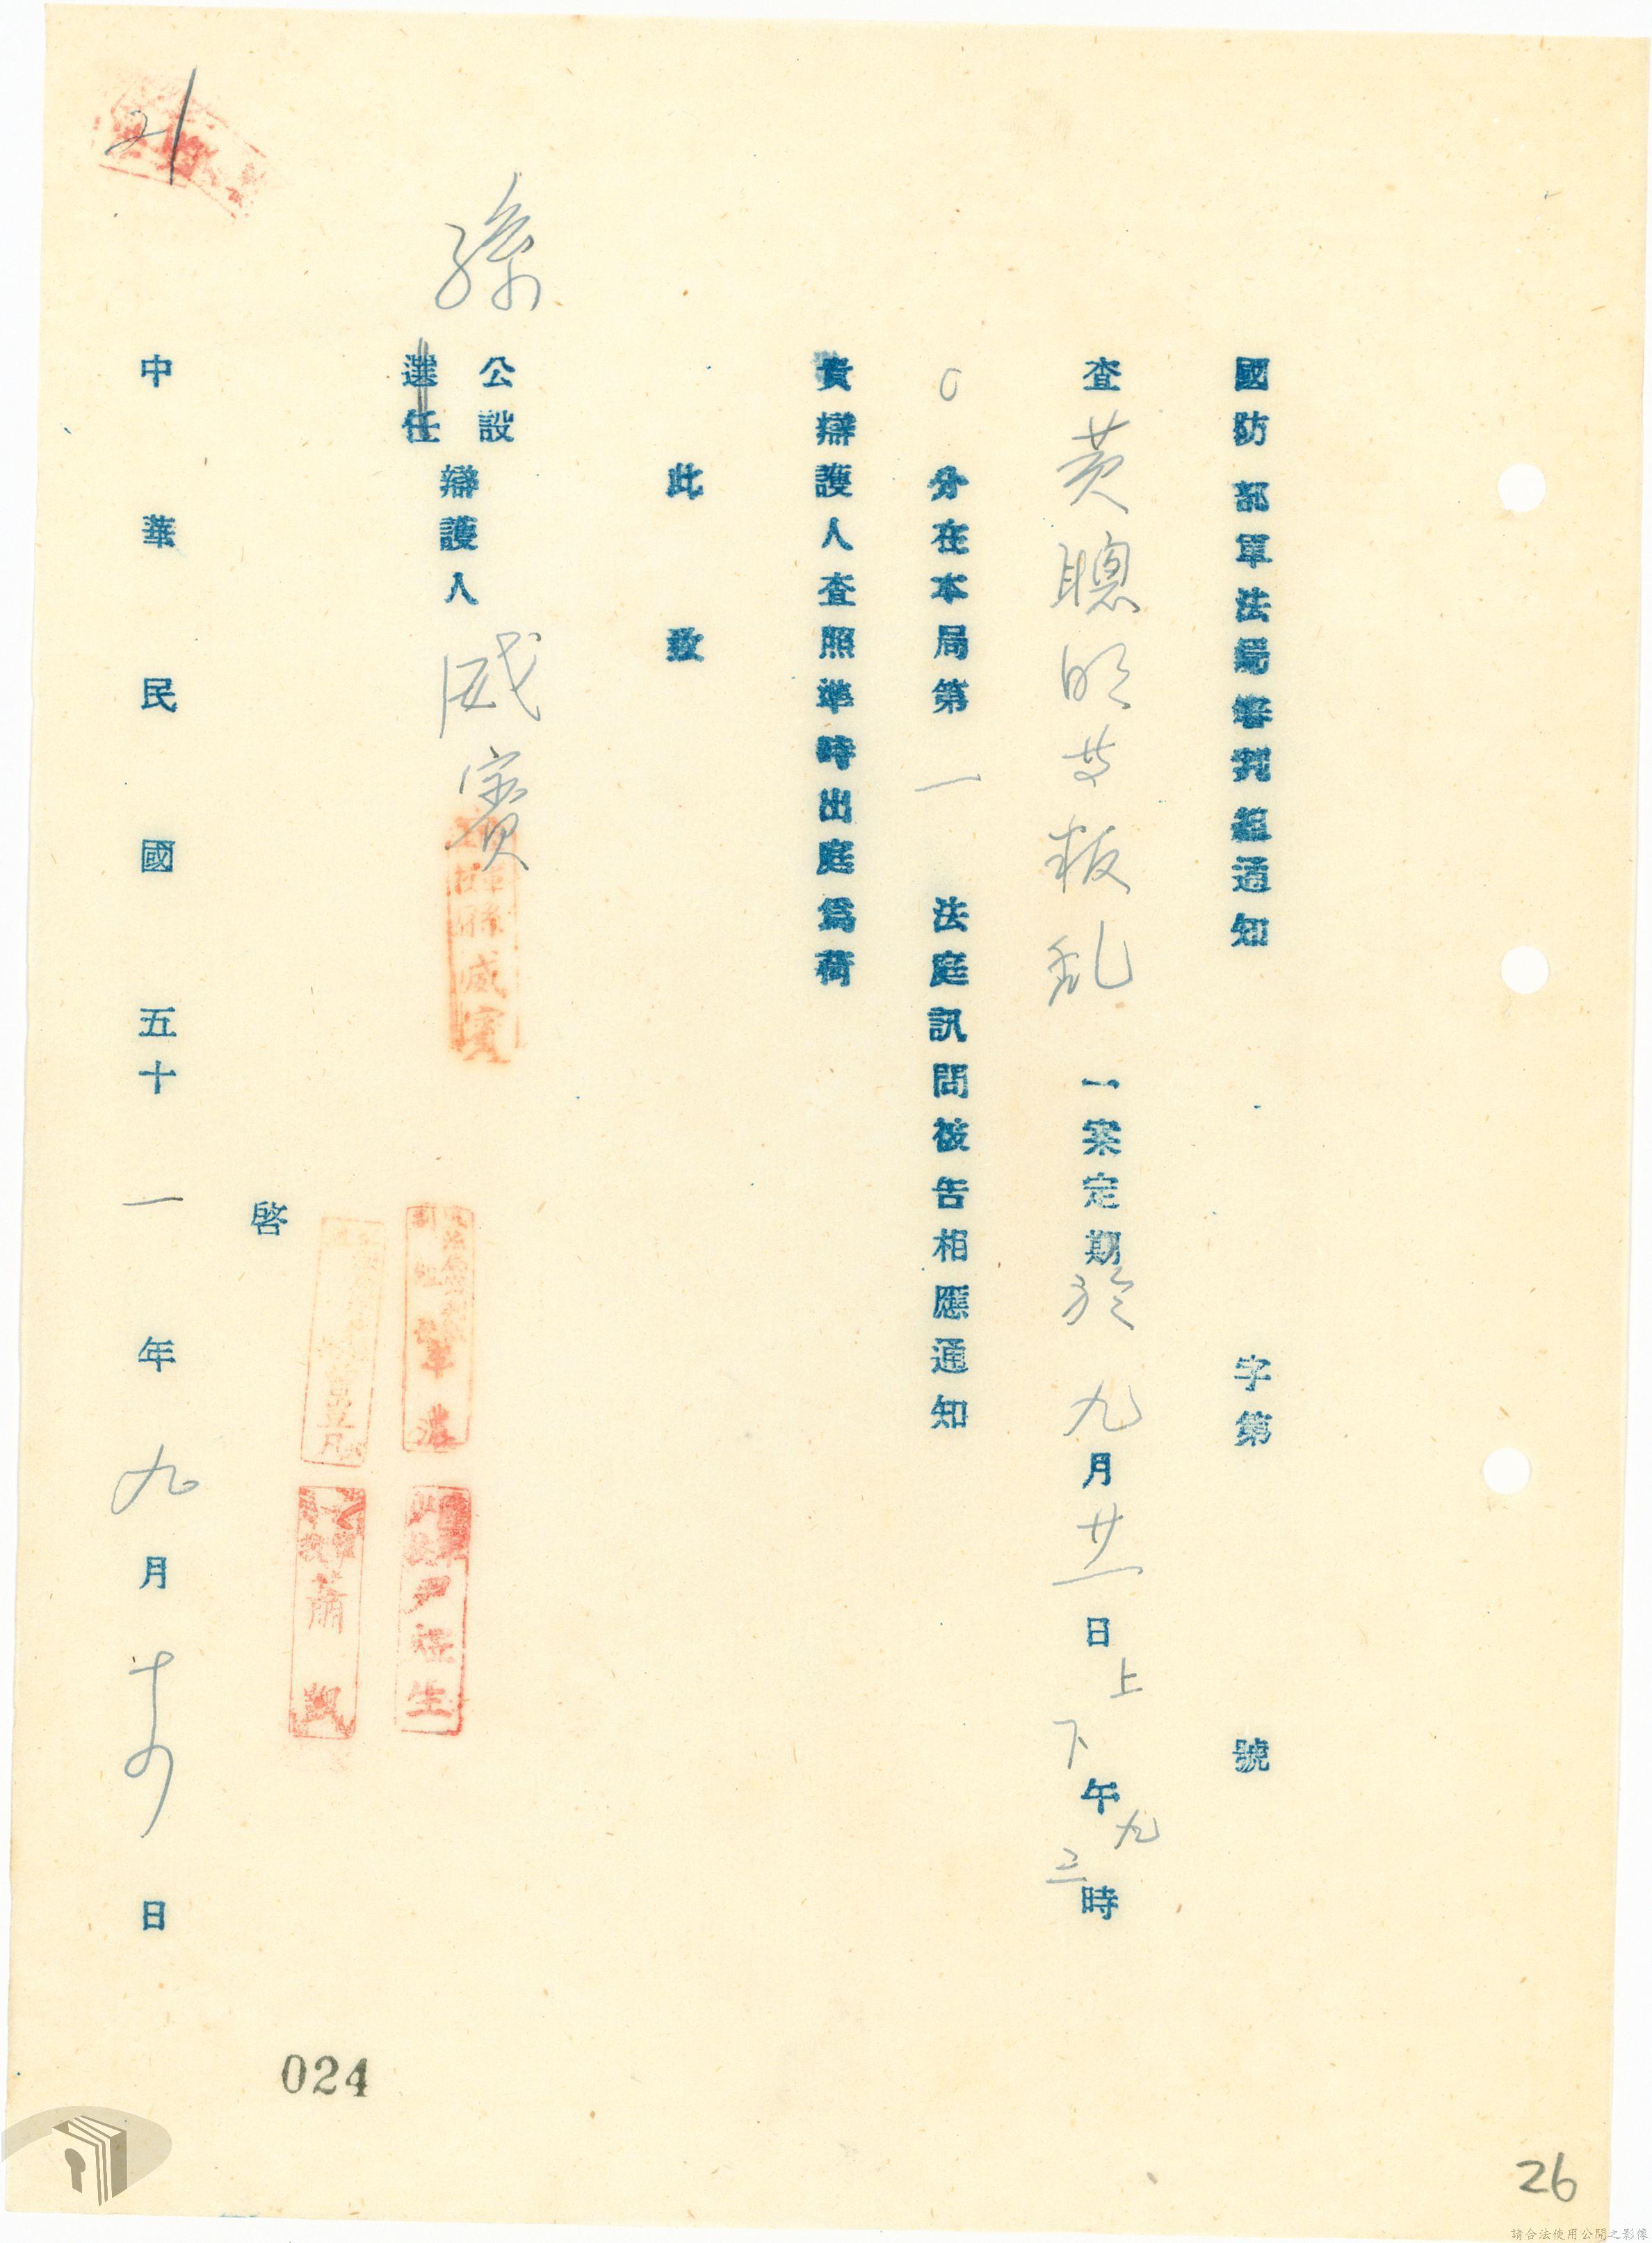 國防部軍法局審判組通知 字第 號
查黃聰明等叛乱一案定期於九月廿一日上下午九三時
〇分在本局第一法庭訊問被告相應通知
貴辯護人查照準時出庭為荷
此致
孫
公設
選任
辯護人 威賓
孫威賓
尹征生
蕭凱
啓
中華民國五十一年九月 日
21
024
26
請合法使用公開之影像